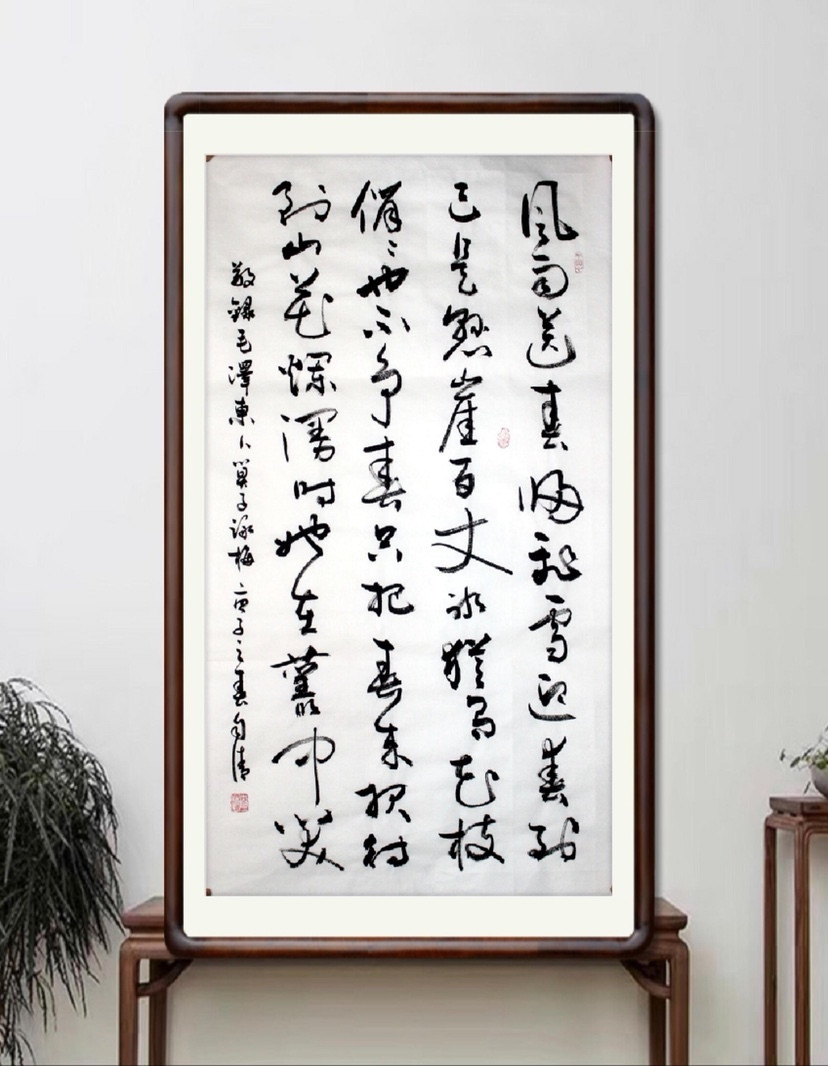 風雨送春歸飛雪迎春到
已是懸崖百丈冰猶有花枝
俏〻也不争春只把春来报待
到山花爛漫時她在叢中笑
敬錄毛澤東卜算子詠梅 庚子之春自清